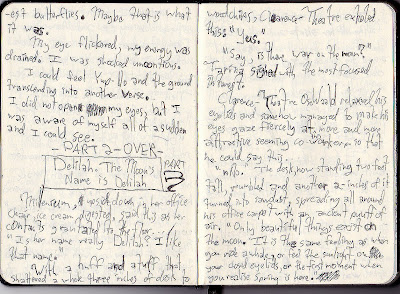 -est butterflies. Maybe that is what
it was.
My eye flickered, my energy was
drained. I was shocked uncontious.
I could feel and the ground
transcending into another verse.
I did not open my eyes, but I
was aware of myself all of a sudden
and I could see.
-PART 2-OVER-
Delilah: The Moon's
Name is Delilah
PART
3
upside down in her office
chair, ice cream digested, said this as her
contacts gravitated to the floor...
"Is her name really Delilah? I like
that name."
With a huff and a puff that
shattered a whole three inches of desk to
Clarence- Theatre exhaled
this: "Yes."
"Say, is there war on the moon?"
sighed with the most focused
interest.
Clarence- Theatre Oswald relaxed his
eyelids and somehow managed to make his
eyes gaze fiercely at his more and more
attractive seeming co-worker so that
he could say this...
"No." The desk now standing two feet
tall, crumbled and another 2-inches of it
turned into sawdust, spreading all around
his office carpet with an ancient puff of
air. "Only beautiful things exist on
the moon. It is the same feeling as when
you ride a whale, or feel the sunlight on
your cold eyelids, or the first moment when
you realise Spring is here.